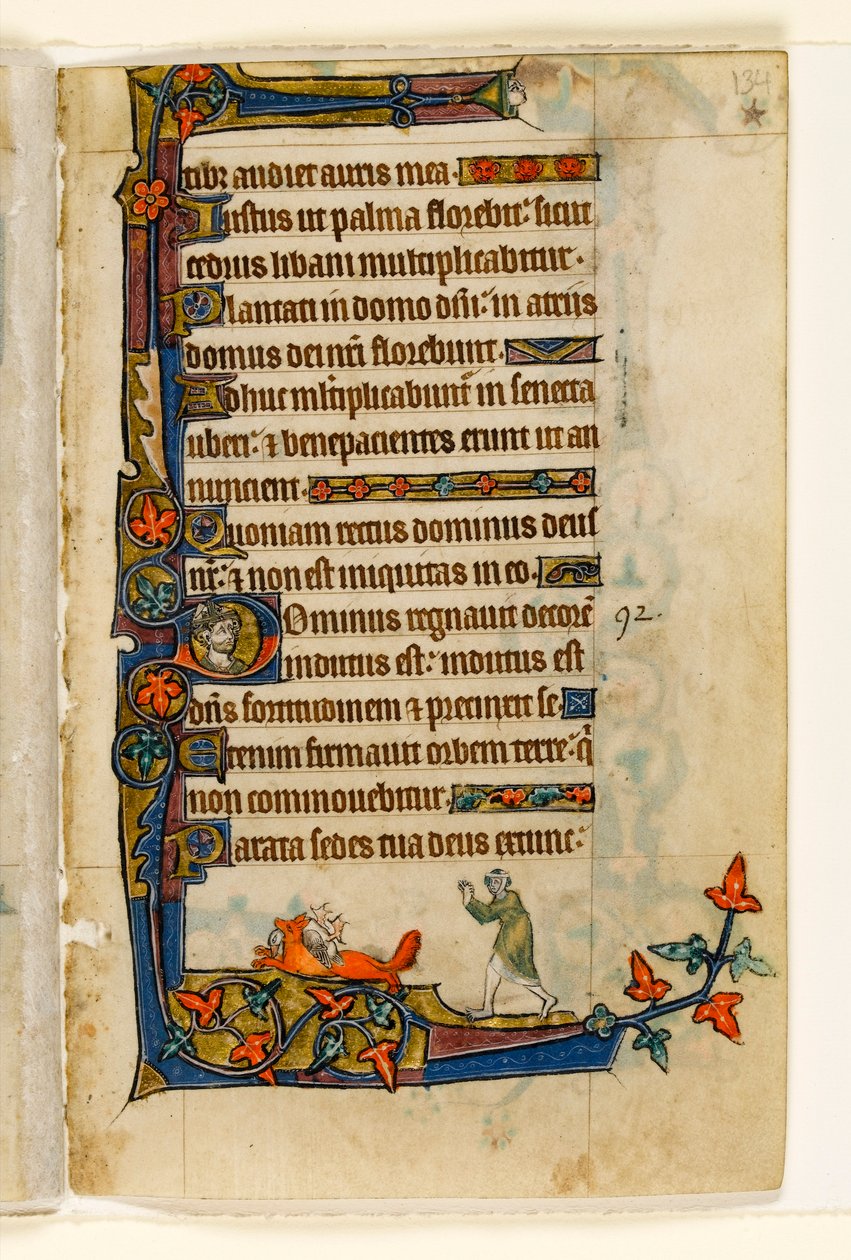 134
tibz audiet auris mea.
Iustus ut palma florebit: sicut
cedrus libani multiplicabitur.
Plantati in domo dñi: in atriis
domus dei nr̃i florebunt.
Adhuc ml̃tiplicabunt̃ in senecta
uberi: ⁊ benepacientes erunt ut an
nuncient.
Quoniam rectus dominus deus
nr̃: ⁊ non est iniquitas in eo.
Dominus regnauit decorẽ
92.
indutus est: indutus est
dñs fortitudinem ⁊ precinxit se.
Etenim firmauit orbem terre: q̃
non commouebitur.
Parata sedes tua deus extunc: